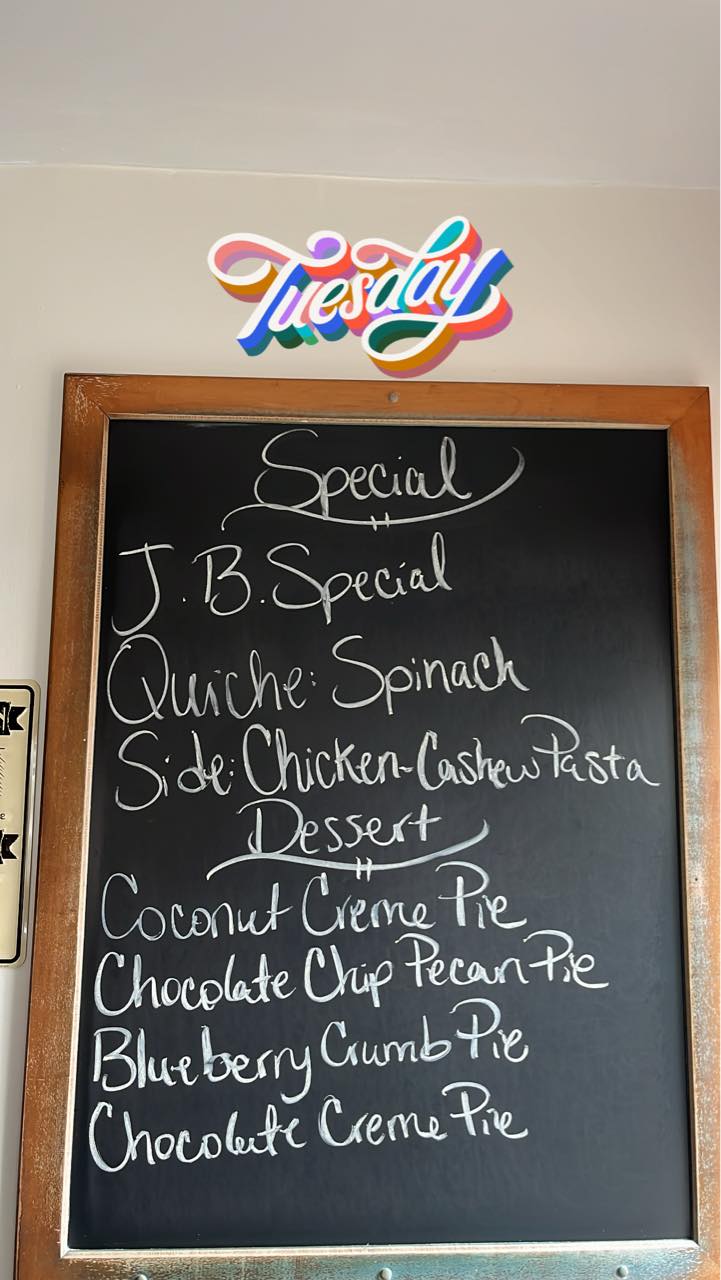 Tuesday
Special
J.B. Special
Quiche: Spinach
Side: Chicken-Cashew Pasta
Dessert
Coconut Creme Pie
Chocolate Chip Pecan Pie
Blueberry Crumb Pie
Chocolate Creme Pie